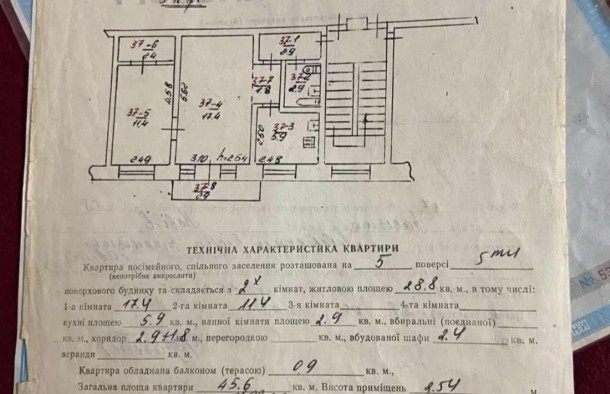 37-6
2.4
37-1
2.9
37-2
2.9
37-7
1.8
4.58
5.60
37-4
17.4
37-5
11.4
37-3
5.9
2.60
2.49
3.10
h=2.54
2.48
37-8
0.9
ТЕХНІЧНА ХАРАКТЕРИСТИКА КВАРТИРИ
Квартира посімейного, спільного заселення розташована на 5 поверсі 5ти
(непотрібне викреслити)
поверхового будинку та складається з 2х кімнат, житловою площею 28.8 кв. м., в тому числі:
1-а кімната 17.4 2-га кімната 11.4 3-я кімната 4-та кімната
кухні площею 5.9 кв. м., ванної кімнати площею 2.9 кв. м., вбиральні (поєднаної)
кв. м., коридор 2.9+1.8 м., перегородкою кв. м., вбудованої шафи 2.4 кв. м.
веранди кв. м.
Квартира обладнана балконом (терасою) 0.9 кв. м.,
Загальна площа квартири 45.6 кв. м. Висота приміщень 2.54 м